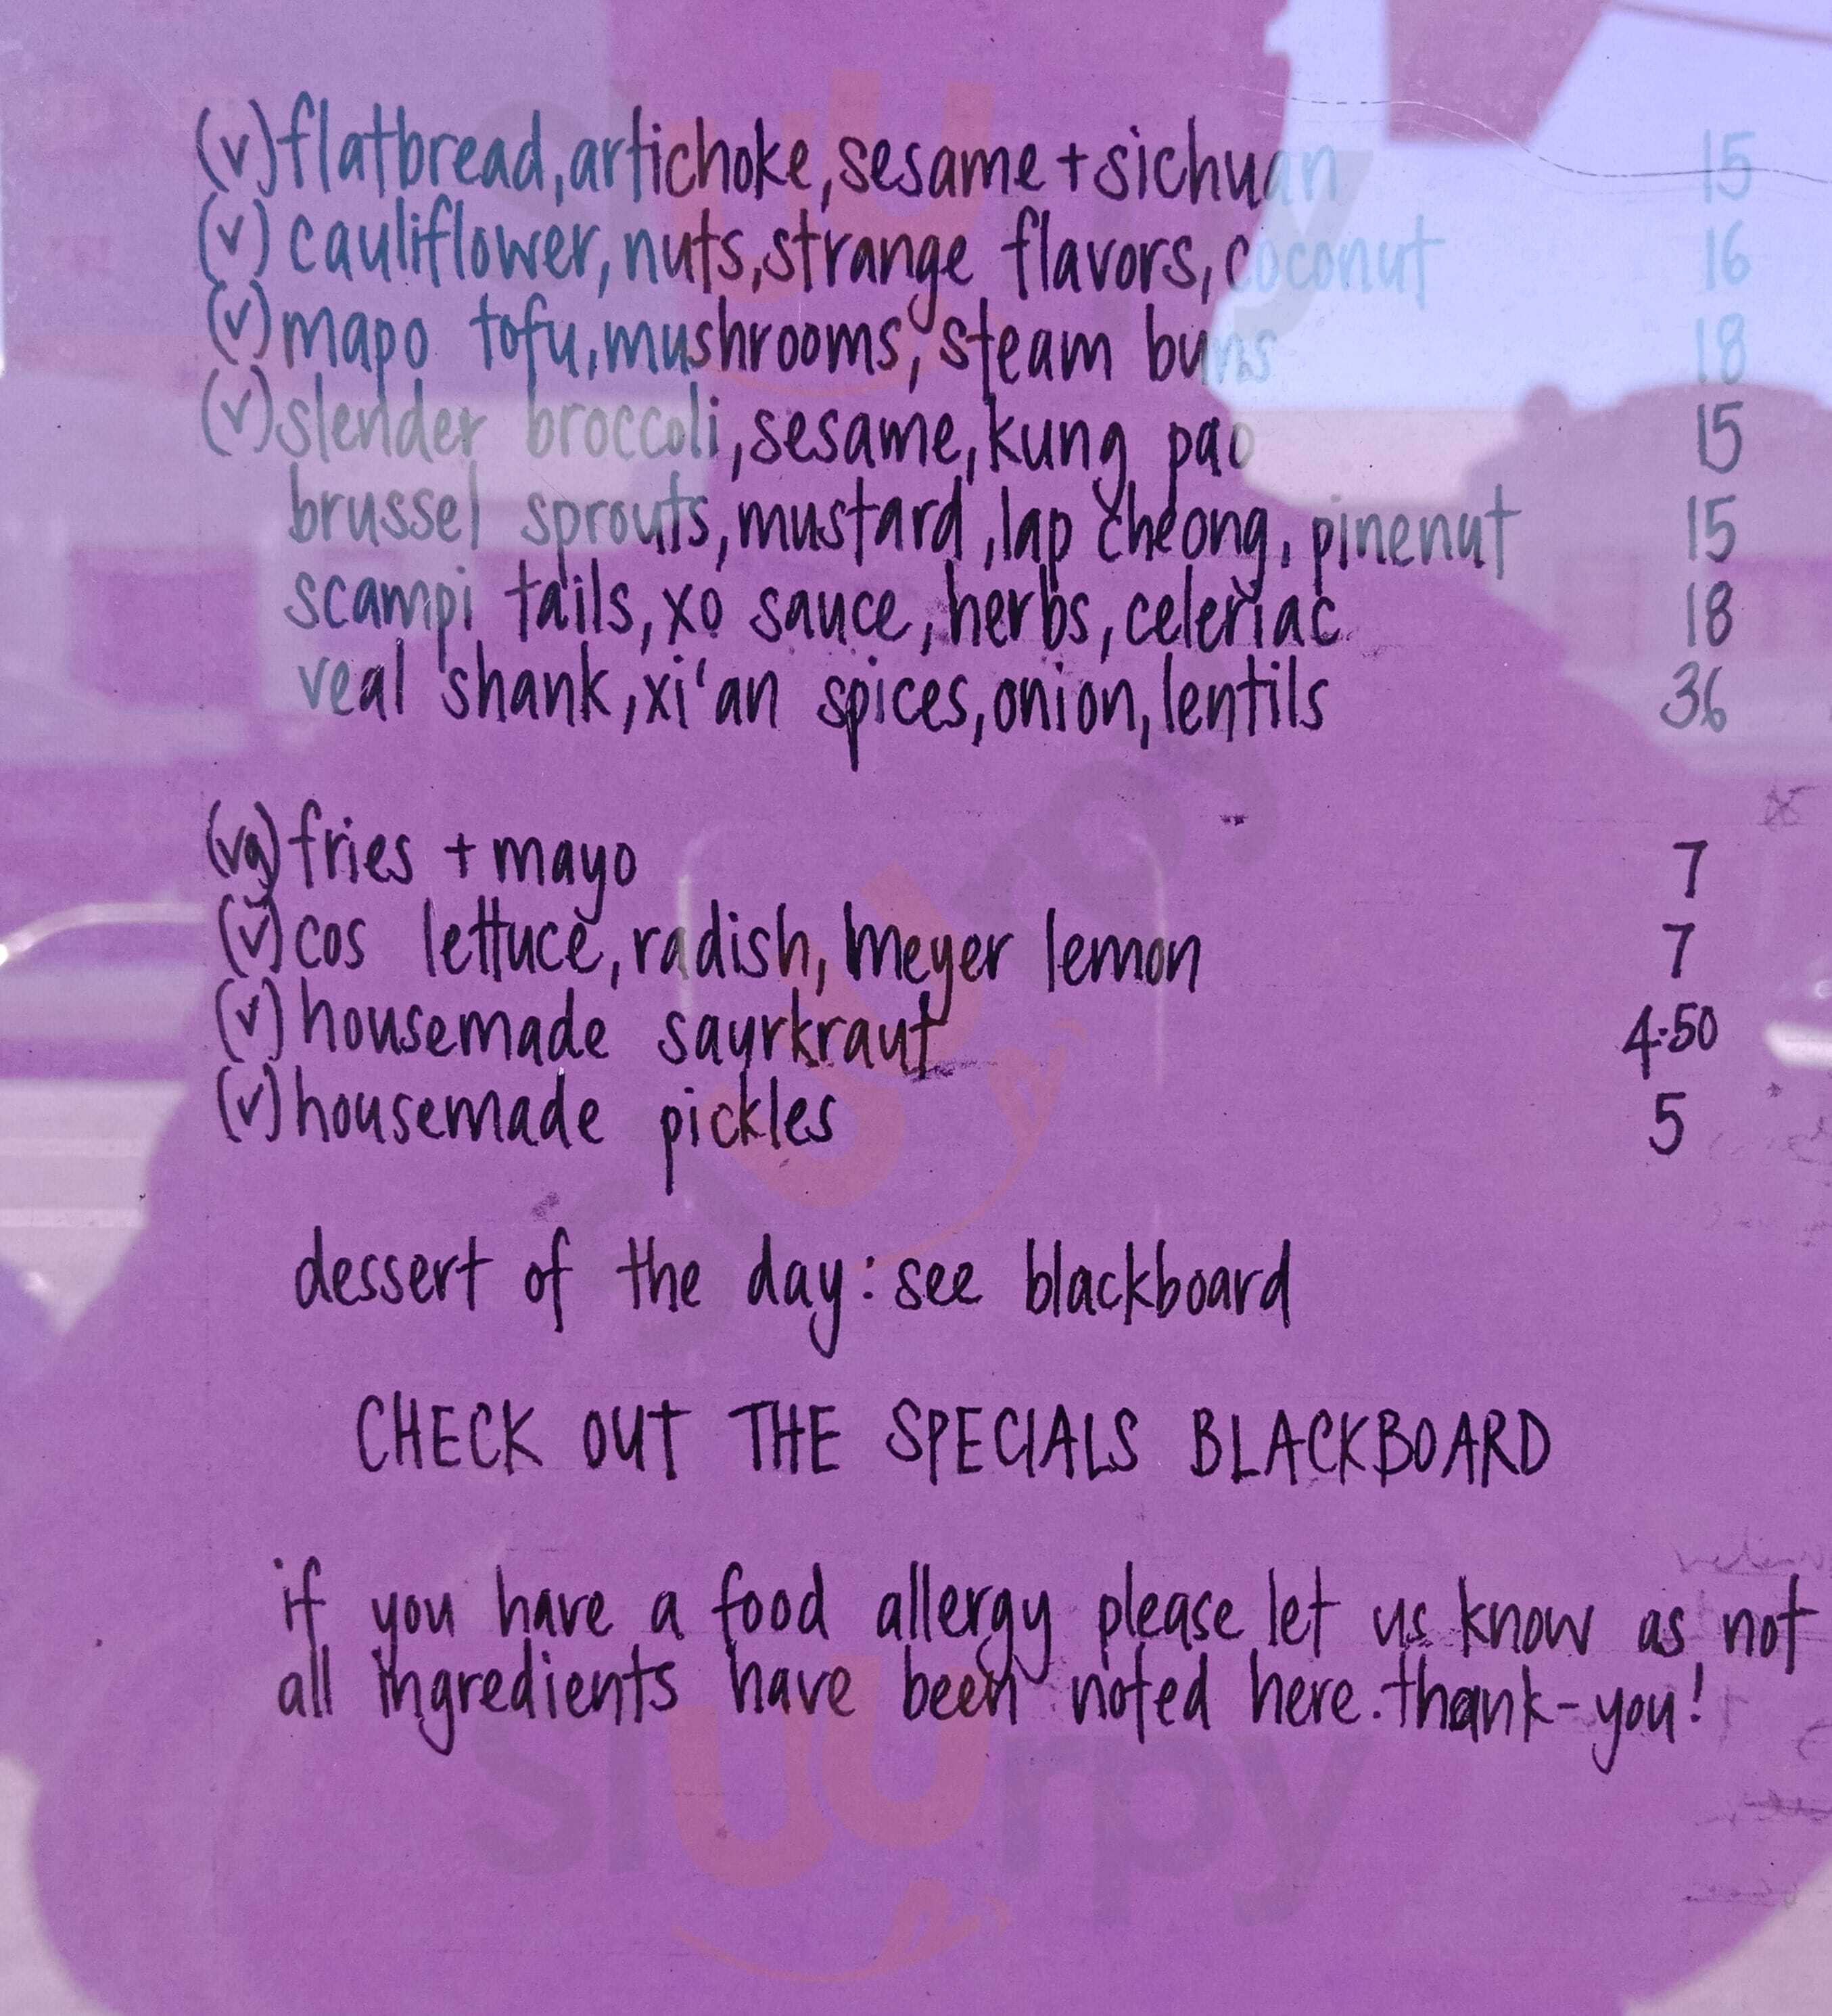 (v) flatbread, artichoke, sesame + sichuan 15
(v) cauliflower, nuts, strange flavors, coconut 16
(v) mapo tofu, mushrooms, steam buns 18
(v) slender broccoli, sesame, kung pao 15
brussel sprouts, mustard, lap cheong, pinenut 15
scampi tails, xo sauce, herbs, celeriac 18
veal shank, xi'an spices, onion, lentils 36
(vg) fries + mayo 7
(v) cos lettuce, radish, meyer lemon 7
(v) housemade saurkraut 4.50
(v) housemade pickles 5
dessert of the day: see blackboard
CHECK OUT THE SPECIALS BLACKBOARD
if you have a food allergy please let us know as not
all ingredients have been noted here. thank-you!
sluurpy
sluurpy
sluurpy